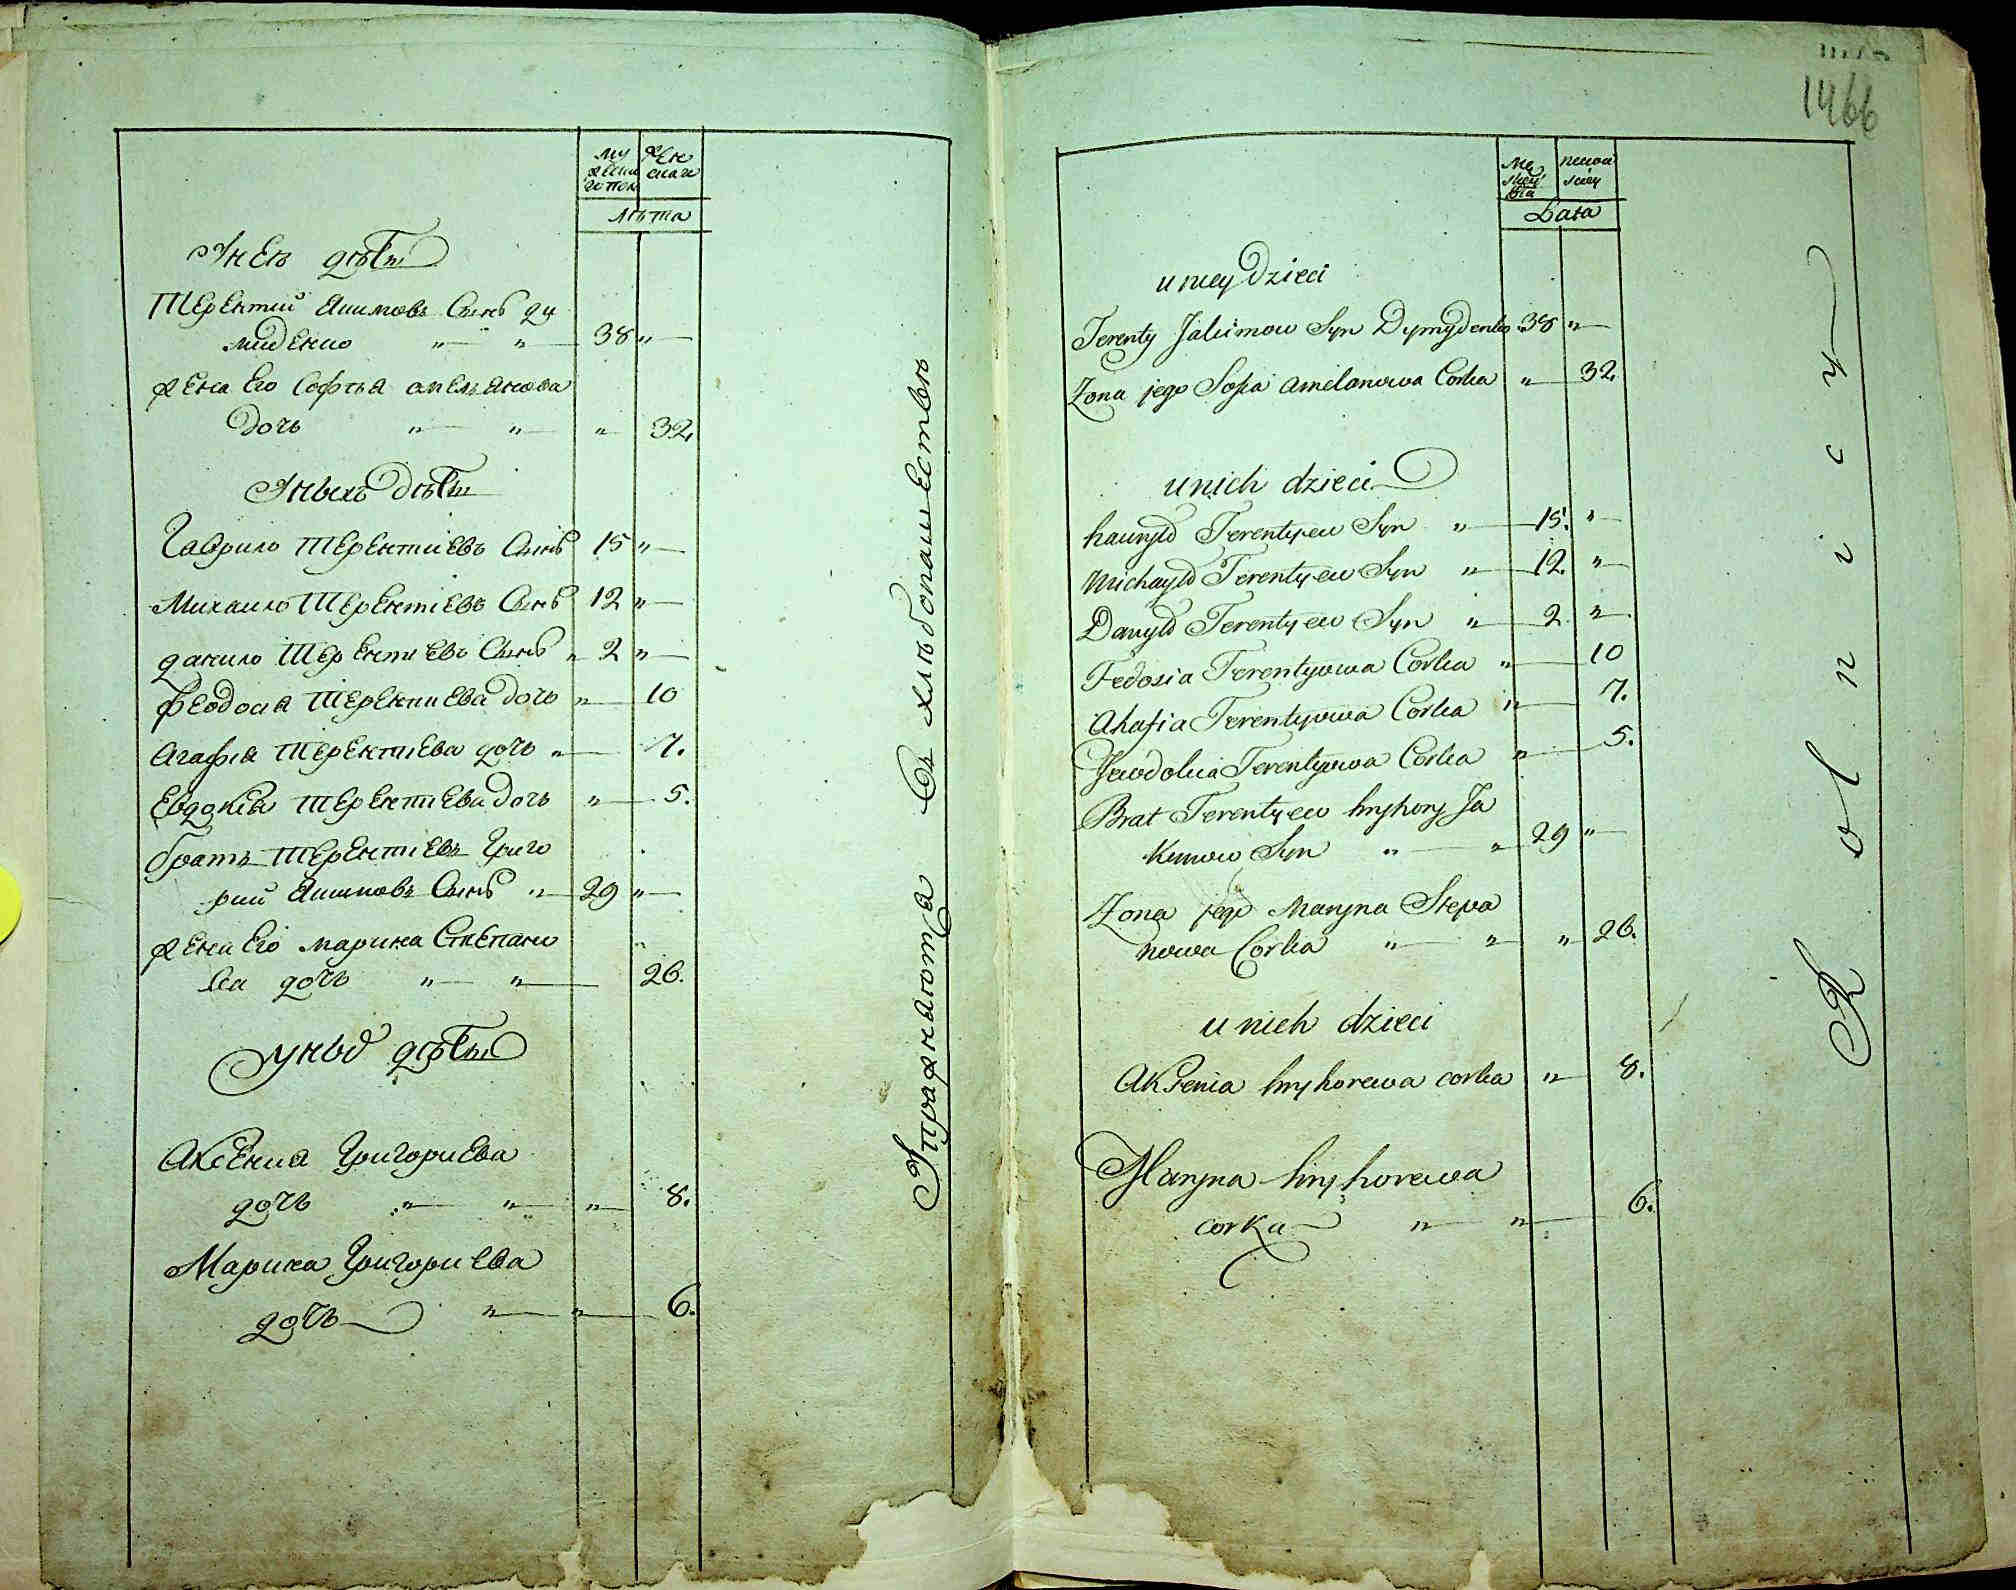 му жеска го пол
жен скаго
лѣта
У неѣ дѣти
Терентий Якимовъ Сынъ ди
миденко " " 38 "
жена Его Софья омельянова
дочь " " " 32.
У ныхъ дѣти
Гаврило Терентиевъ Сынъ 15 "
Михаило Терентіевъ Сынъ 12 "
данило Терентиевъ Сынъ " 2 "
феодосия Терентиева дочь " 10
Агафия Терентиева дочь " 7.
Евдокия Терентиева дочь " 5.
братъ Терентиевъ Григо
рий Якимовъ Сынъ " 29 "
жена Его марина Степано
ва дочь " " 26.
у ныхъ дѣти
Аксения Григориева
дочь " " " 8.
Марина Григориева
дочь " " 6.
Упражняются въ хлѣбопашествѣ
1466
Lata
u niey dzieci
Terenty Jakimow Syn Dymydenko 38 "
Zona jego Sofia Amelanowa Corka " 32.
u nich dzieci
hawryło Terentyew Syn " 15. "
Michayło Terentyew Syn " 12. "
Danyło Terentyew Syn " 2 "
Fedosia Terentyowa Corka " 10
Ahafia Terentyowa Corka " 7.
Jewdokia Terentyowa Corka " 5.
Brat Terentyew hryhory Ja
Kimow Syn " " 29 "
Zona jego Maryna Stepa
nowa Corka " " " 26.
u nich dzieci
AKsenia hryhorewa corka " 8.
Maryna hryhorewa
corka " " 6.
Rolnicy